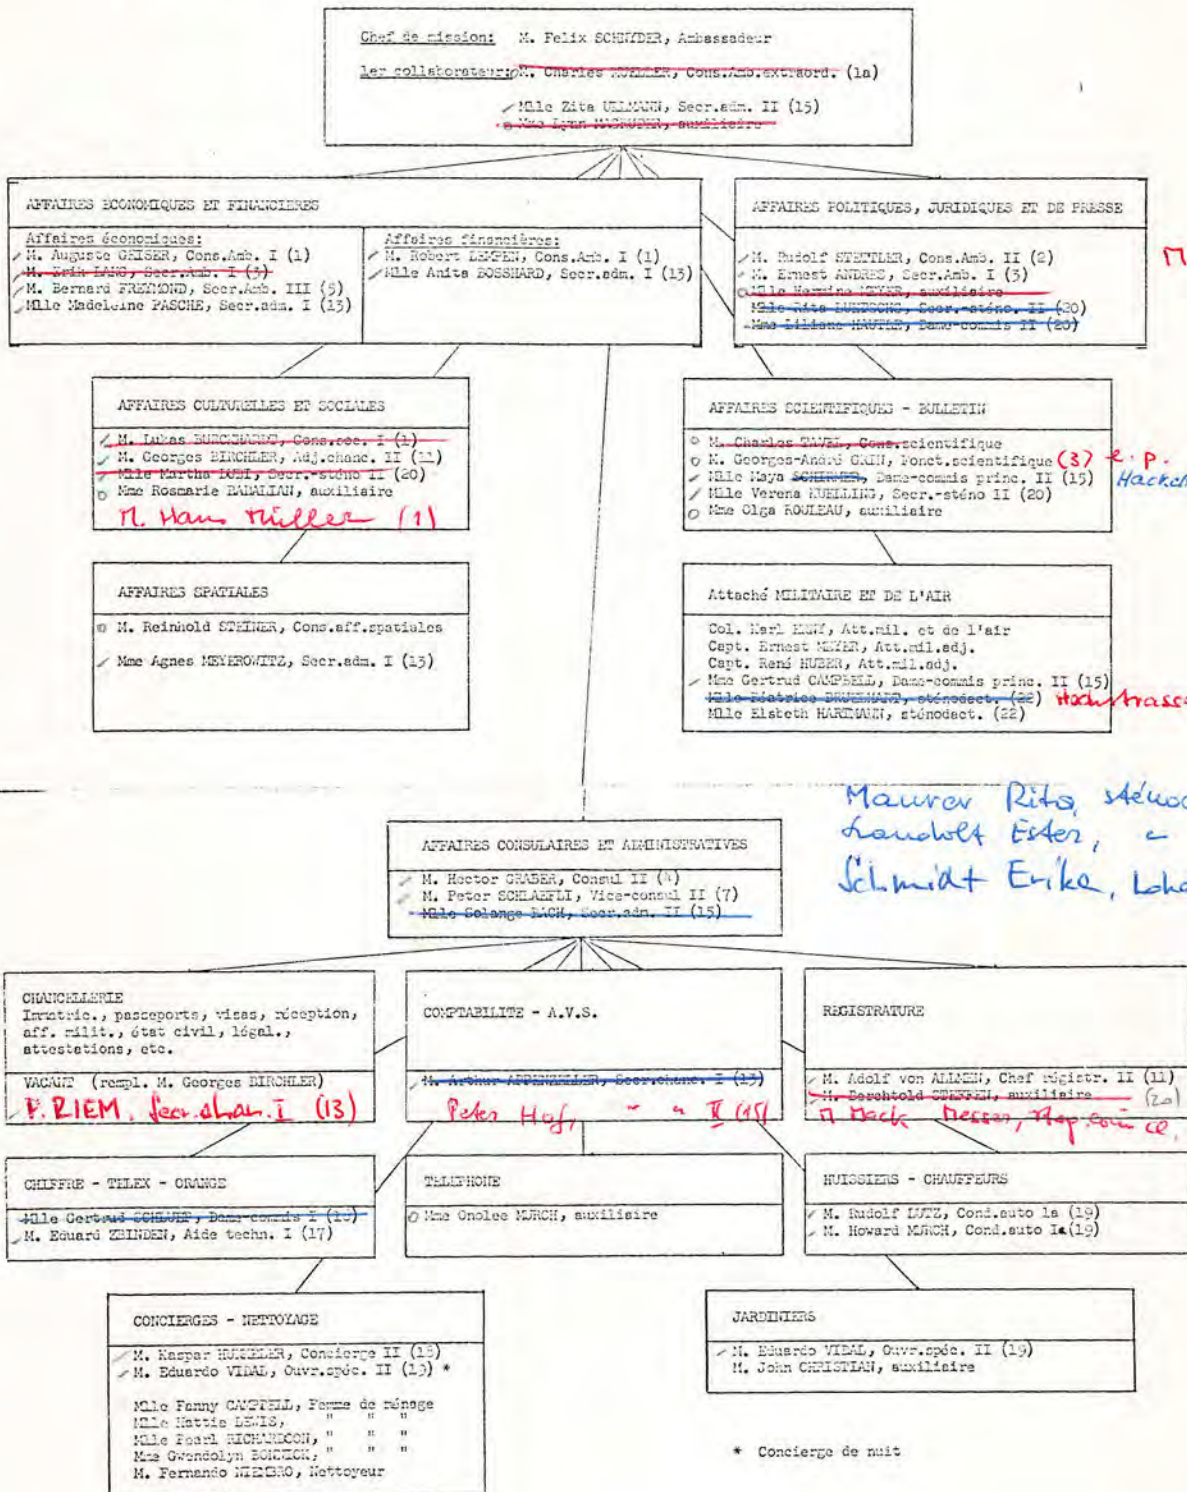 Chef de mission: M. Felix SCHNYDER, Ambassadeur
1er collaborateur: M. Charles MUELLER, Cons.Amb.extraord. (1a)
Mlle Zita ULLMANN, Secr.adm. II (15)
Mme Lynn MAGRUDER, auxiliaire
AFFAIRES ECONOMIQUES ET FINANCIERES
Affaires économiques:
M. Auguste GEISER, Cons.Amb. I (1)
M. Erik LANG, Secr.Amb. I (3)
M. Bernard FREYMOND, Secr.Amb. III (5)
Mlle Madeleine PASCHE, Secr.adm. I (13)
Affaires financières:
M. Robert LEMPEN, Cons.Amb. I (1)
Mlle Anita BOSSHARD, Secr.adm. I (13)
AFFAIRES POLITIQUES, JURIDIQUES ET DE PRESSE
M. Rudolf STETTLER, Cons.Amb. II (2)
M. Ernest ANDRES, Secr.Amb. I (3)
Mlle Hermine MEYER, auxiliaire
Mlle Rita Secr.-sténo. II (20)
Mme Liliane Dame-commis II (20)
M
AFFAIRES CULTURELLES ET SOCIALES
M. Lukas BURCKHARDT, Cons.soc. I (1)
M. Georges BIRCHLER, Adj.chanc. II (11)
Mlle Martha Secr.-sténo II (20)
Mme Rosmarie BABALIAN, auxiliaire
M. Hans Müller (1)
AFFAIRES SCIENTIFIQUES - BULLETIN
M. Charles TAVEL, Cons.scientifique
M. Georges-André GRIN, Fonct.scientifique (3) e. p.
Mlle Maya SCHIRMER, Dame-commis princ. II (15) Hacken
Mlle Verena KUELLING, Secr.-sténo II (20)
Mme Olga ROULEAU, auxiliaire
AFFAIRES SPATIALES
M. Reinhold STEINER, Cons.aff.spatiales
Mme Agnes MEYEROWITZ, Secr.adm. I (13)
Attaché MILITAIRE ET DE L'AIR
Col. Karl Att.mil. et de l'air
Capt. Ernest MEYER, Att.mil.adj.
Capt. René HUBER, Att.mil.adj.
Mme Gertrud CAMPBELL, Dame-commis princ. II (15)
Mlle Béatrice sténodact. (22) Hochstrasse
Mlle Elsbeth HARTMANN, sténodact. (22)
Maurer Rita, sténod
Landolt Ester, "
Schmidt Erika, Loka
AFFAIRES CONSULAIRES ET ADMINISTRATIVES
M. Hector GRABER, Consul II (4)
M. Peter SCHLAEFLI, Vice-consul II (7)
Mlle Solange BACH, Secr.adm. II (15)
CHANCELLERIE
Immatric., passeports, visas, réception,
aff. milit., état civil, légal.,
attestations, etc.
VACANT (rempl. M. Georges BIRCHLER)
P. RIEM. Secr.chan. I (13)
COMPTABILITE - A.V.S.
M. Arthur APPENZELLER, Secr.chanc. I (13)
Peter Hof, " " II (15)
REGISTRATURE
M. Adolf von ALLMEN, Chef régistr. II (11)
M. Berchtold STEFFEN, auxiliaire (20)
M Mack Messer,
CHIFFRE - TELEX - ORANGE
Mlle Gertrud Dame-commis I (18)
M. Eduard ZBINDEN, Aide techn. I (17)
TELEPHONE
Mme Onolee MURCH, auxiliaire
HUISSIERS - CHAUFFEURS
M. Rudolf LUTZ, Cond.auto 1a (19)
M. Howard MURCH, Cond.auto Ia (19)
CONCIERGES - NETTOYAGE
M. Kaspar Concierge II (18)
M. Eduardo VIDAL, Ouvr.spéc. II (19) *
Mlle Fanny CAMPBELL, Femme de ménage
Mlle Hattie LEWIS, " " "
Mlle Pearl RICHARDSON, " " "
Mme Gwendolyn " " "
M. Fernando Nettoyeur
JARDINIERS
M. Eduardo VIDAL, Ouvr.spéc. II (19)
M. John CHRISTIAN, auxiliaire
* Concierge de nuit